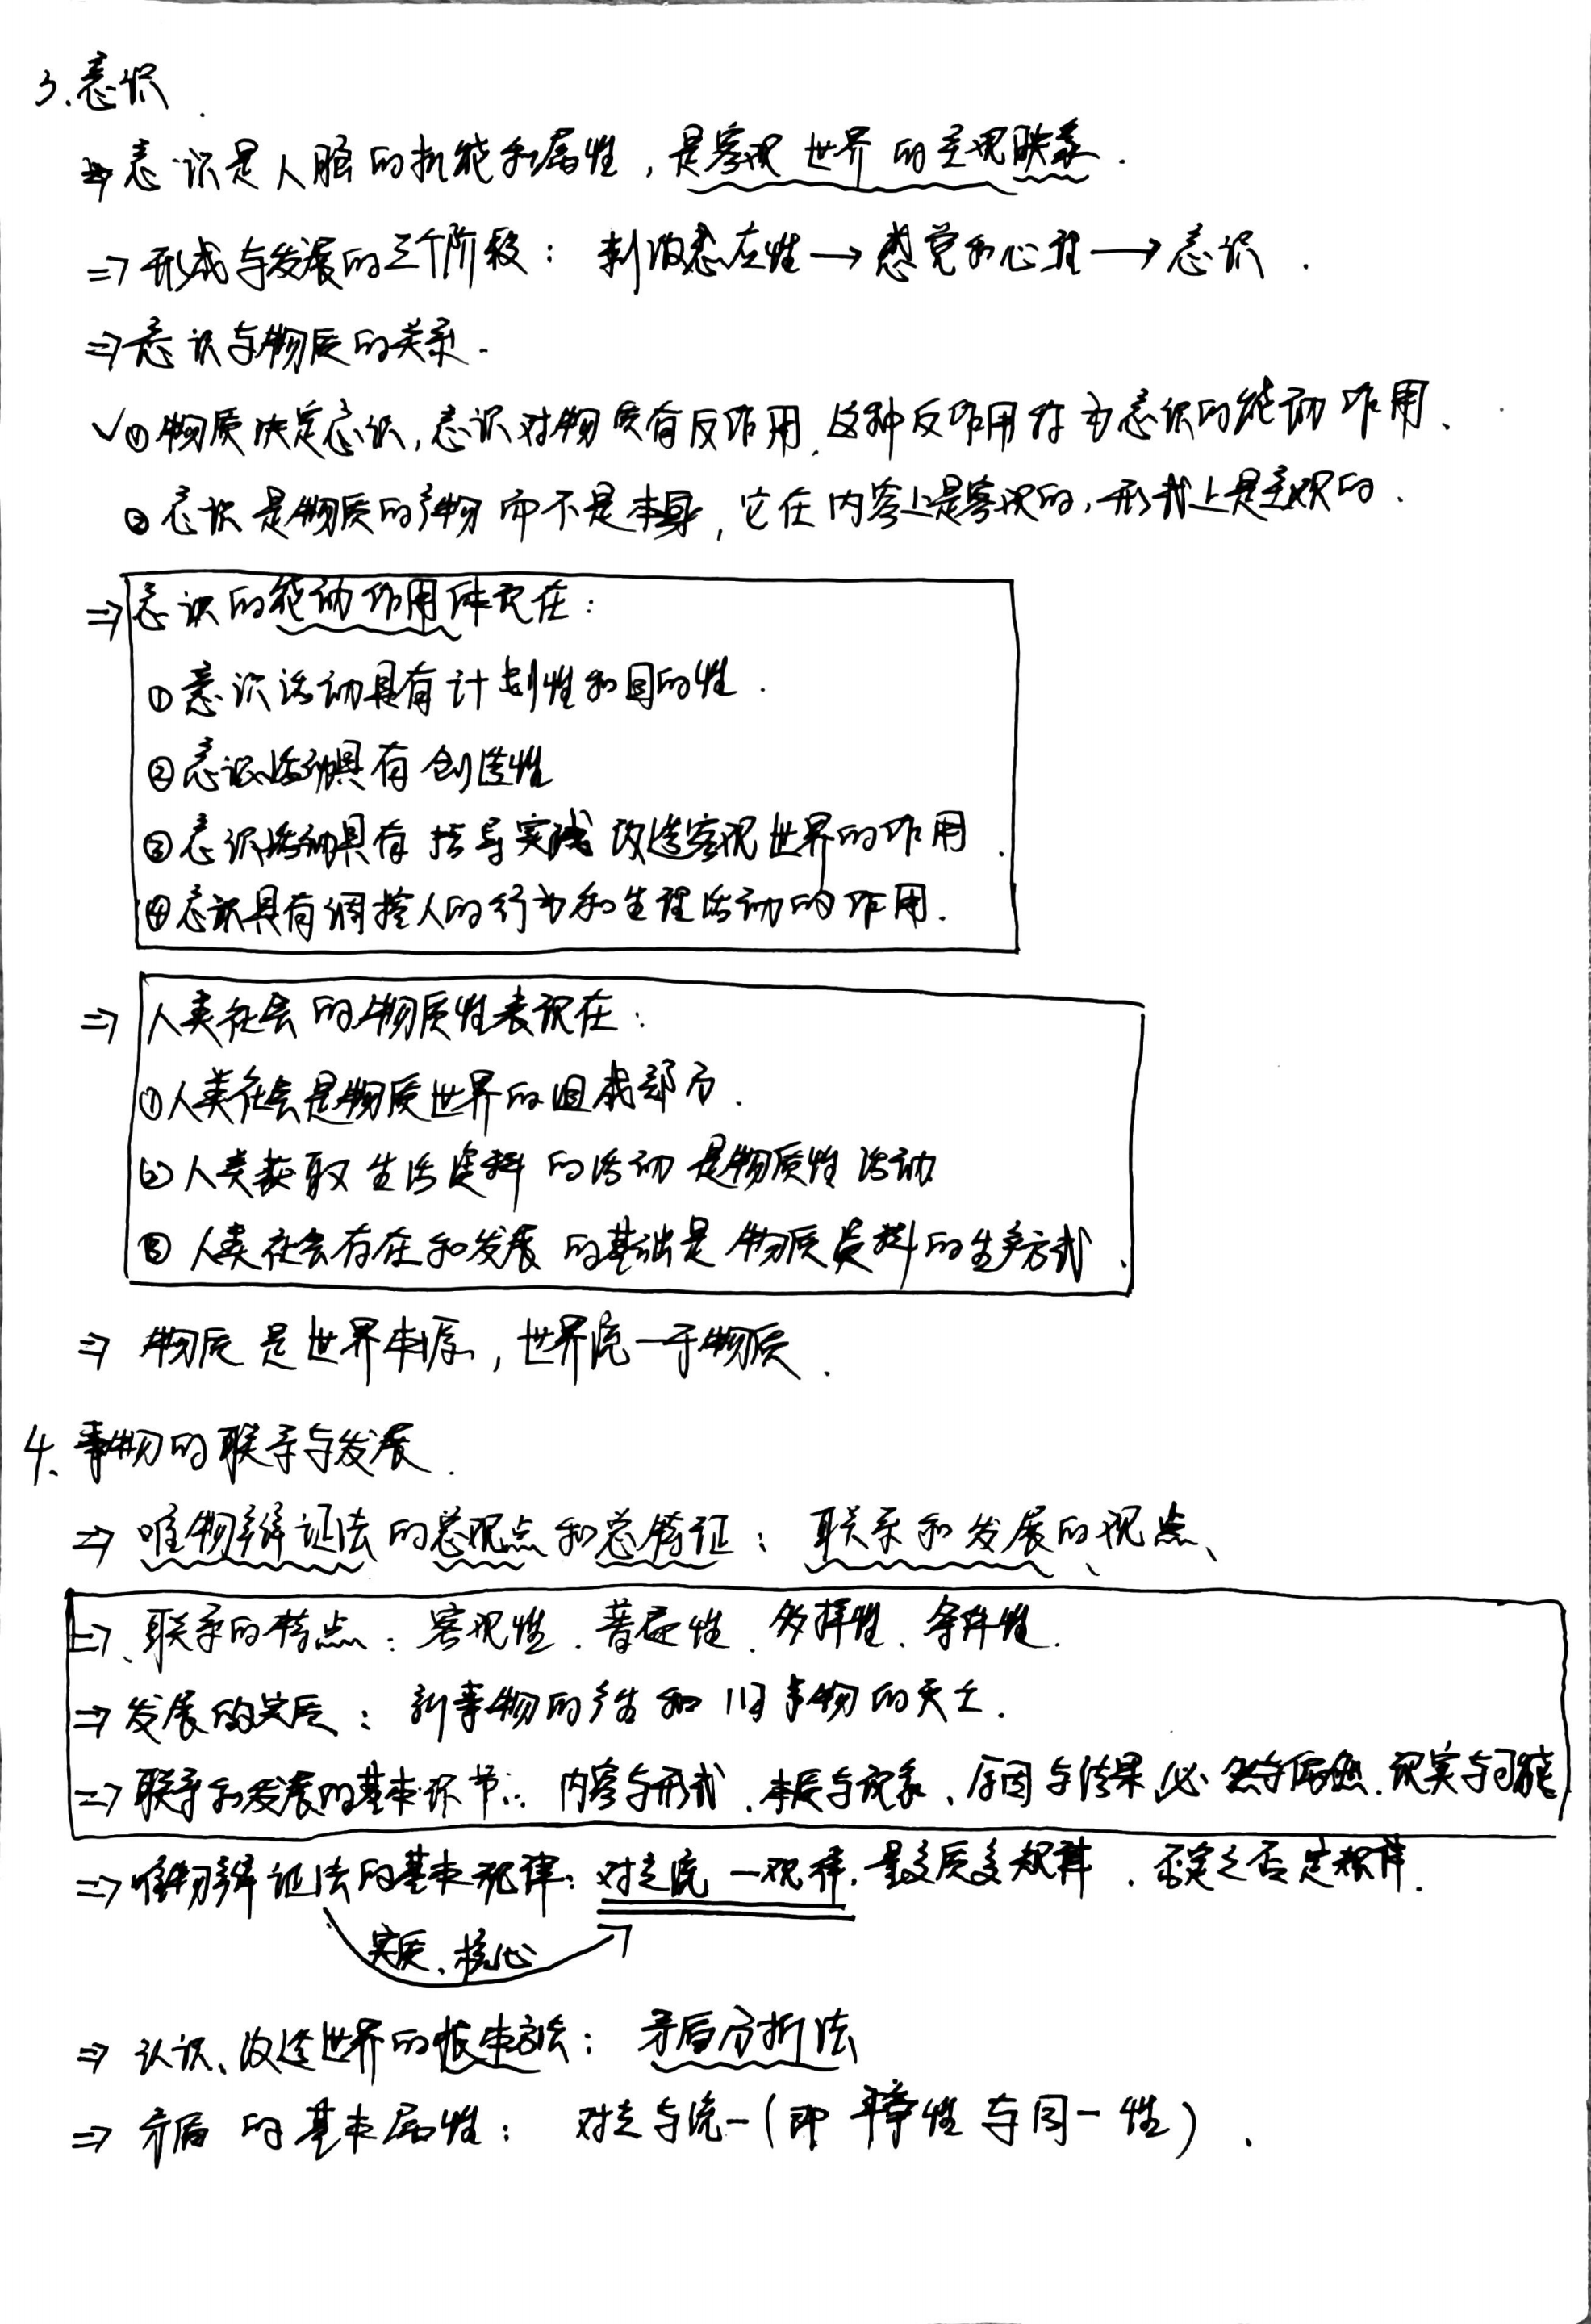 3.意识
⇒意识是人脑的机能和属性，是客观世界的主观映象.
⇒形成与发展的三个阶段：刺激感应性→感觉和心理→意识.
⇒意识与物质的关系.
√①物质决定意识,意识对物质有反作用、这种反作用称为意识的能动作用、
②意识是物质的产物而不是本身，它在内容上是客观的,形式上是主观的.
⇒意识的能动作用体现在：
①意识活动具有计划性和目的性.
②意识活动具有创造性
③意识活动具有指导实践改造客观世界的作用.
④意识具有调控人的行为和生理活动的作用.
⇒人类社会的物质性表现在：
①人类社会是物质世界的组成部分.
②人类获取生活资料的活动是物质性活动
③人类社会存在和发展的基础是物质资料的生产方式、
⇒物质是世界本原，世界统一于物质.
4.事物的联系与发展.
⇒唯物辩证法的总观点和总特征：联系和发展的观点、
⇒联系的特点：客观性、普遍性、多样性、条件性.
⇒发展的实质：新事物的产生和旧事物的灭亡.
⇒联系和发展的基本环节：内容与形式、本质与现象、原因与结果、必然与偶然、现实与可能
⇒唯物辩证法的基本规律：对立统一规律、量变质变规律、否定之否定规律.
实质、核心
⇒认识、改造世界的根本方法：矛盾分析法
⇒矛盾的基本属性：对立与统一(即斗争性与同一性)、